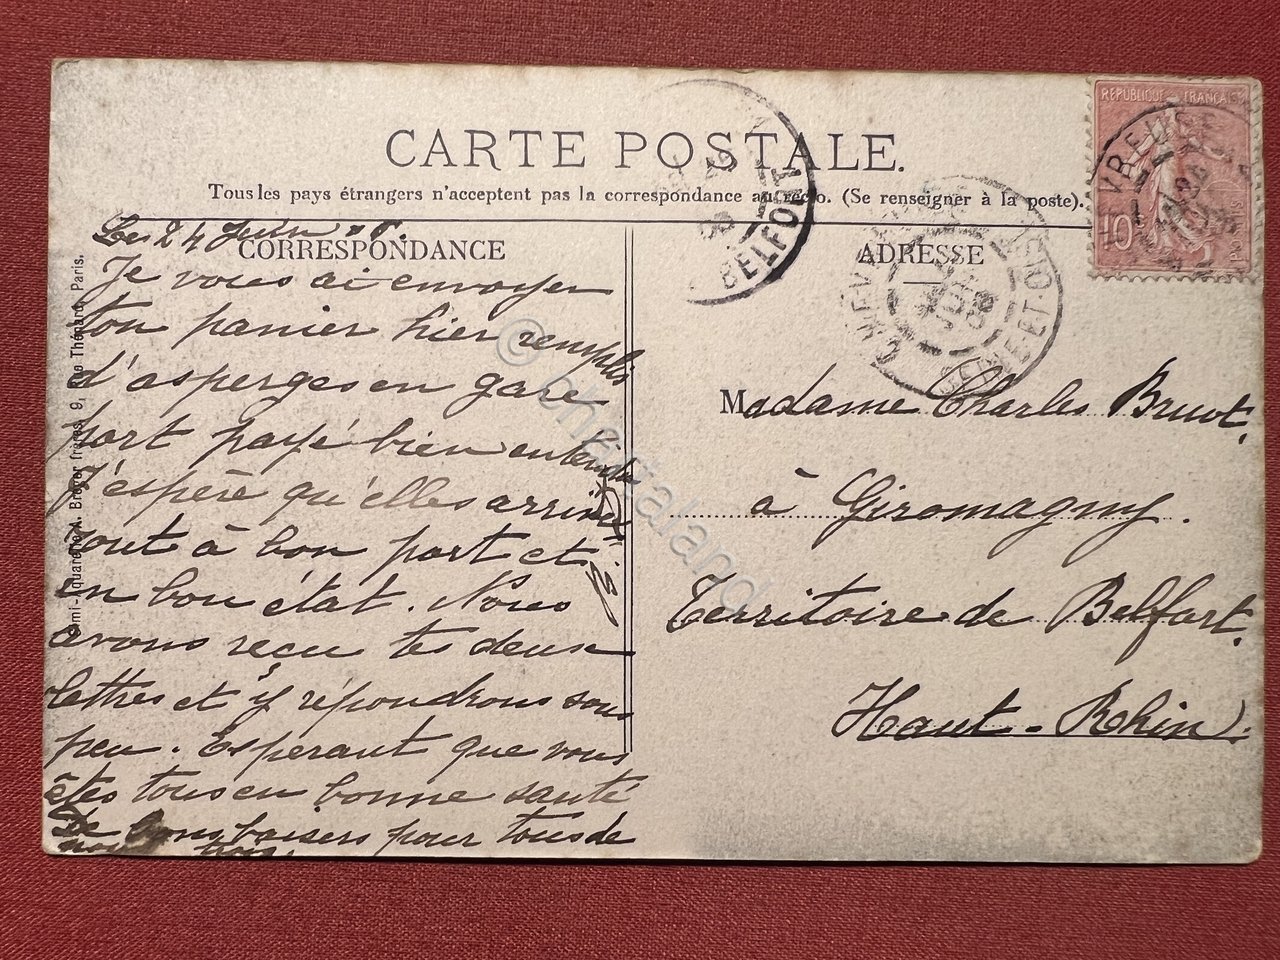 CARTE POSTALE.
Tous les pays étrangers n'acceptent pas la correspondance au recto. (Se renseigner à la poste).
CORRESPONDANCE
Les 24 Juin
Je vous ai envoyer
ton panier hier remplis
d'asperges en gare
port payé bien entendu
J'espère qu'elles arrive
tout à bon port et
en bon état. Nous
avons reçu tes deux
lettres et y répondrons sous
peu. Esperant que vous
êtes tous en bonne santé
De bons baisers pour tous de
nous trois.
ADRESSE
Madame Charles Bruot.
à Giromagny.
Territoire de Belfort.
Haut-Rhin.
REPUBLIQUE FRANÇAISE
10
BELFORT
CHEVREUSE
SEINE-ET-OISE
JUIN
A. Breger frères, 9, Rue Thénard, Paris.
© chartaland